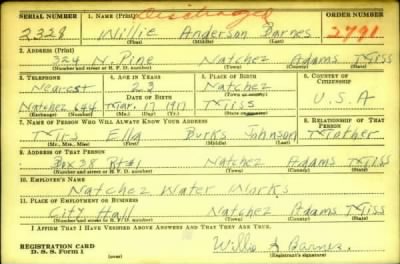 SERIAL NUMBER 1. NAME (Print) Discharged ORDER NUMBER
2328 Willie Anderson Barnes 2791
(First) (Middle) (Last)
2. ADDRESS (Print)
324 N. Pine Natchez Adams Miss
(Number and street or R. F. D. number) (Town) (County) (State)
3. TELEPHONE 4. AGE IN YEARS 5. PLACE OF BIRTH 6. COUNTRY OF CITIZENSHIP
Nearest 23 Natchez
DATE OF BIRTH (Town or county)
Natchez 644 Mar. 17 1917 Miss U.S.A
(Exchange) (Number) (Mo.) (Day) (Yr.) (State or country)
7. NAME OF PERSON WHO WILL ALWAYS KNOW YOUR ADDRESS 8. RELATIONSHIP OF THAT PERSON
Mrs Ella Burks Johnson Mother
(Mr., Mrs., Miss) (First) (Middle) (Last)
9. ADDRESS OF THAT PERSON
Box 38 Rt #1 Natchez Adams Miss
(Number and street or R. F. D. number) (Town) (County) (State)
10. EMPLOYER'S NAME
Natchez Water Works
11. PLACE OF EMPLOYMENT OR BUSINESS
City Hall Natchez Adams Miss
(Number and street or R. F. D. number) (Town) (County) (State)
I AFFIRM THAT I HAVE VERIFIED ABOVE ANSWERS AND THAT THEY ARE TRUE.
REGISTRATION CARD
D. S. S. Form 1 (over) Willie A Barnes.
(Registrant's signature)